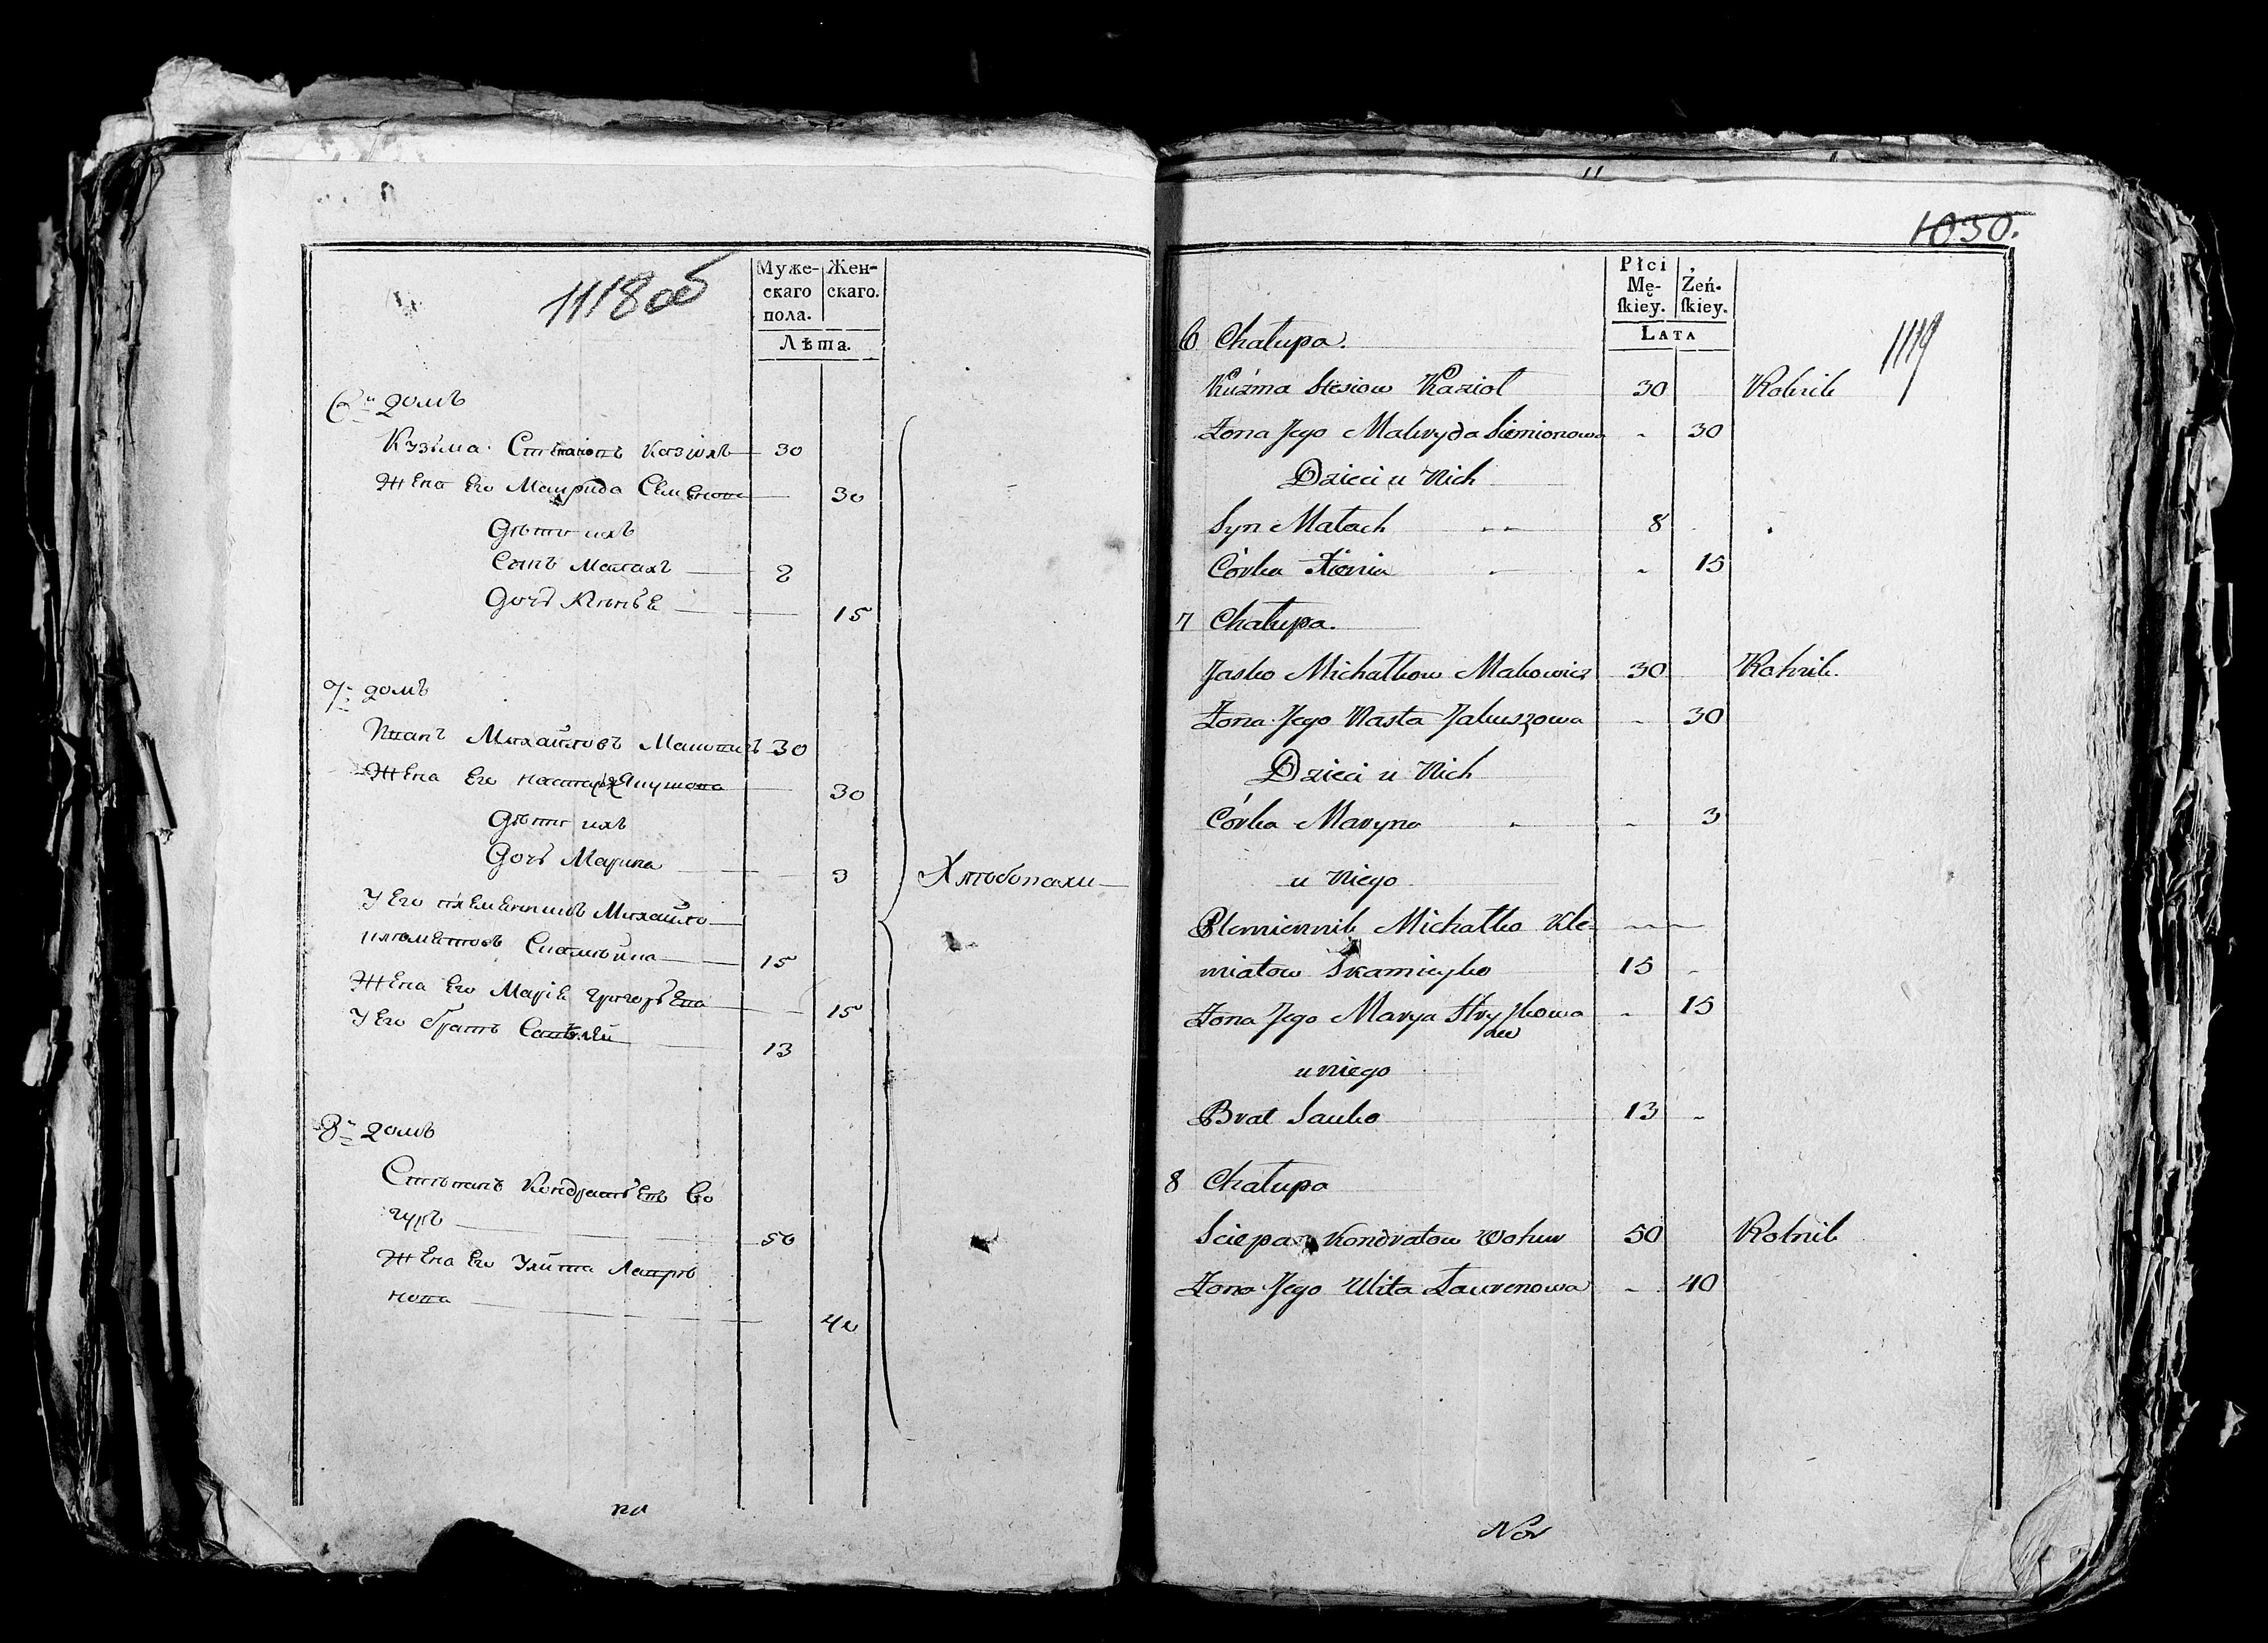 1118 об
Муже-
скаго
пола.
Жен-
скаго.
Лѣта.
6й домъ
Кузьма Степановъ Козіолъ 30
Жена Его Мавруда Семенова 30
Дѣти ихъ
Сынъ Малахъ 8
Дочь 15
7й домъ
Иванъ Михайловъ 30
Жена Его Настасья Якушова 30
Дѣти ихъ
Дочь Марина 3
У Его племенникъ Михайло
15
Жена Его Маріа Григорьева 15
У Его братъ Савелей 13
Хлѣбопахи
8й домъ
Степанъ Кондратьевъ Во
гуръ 50
Жена Его Улита Лавре
нова 40
1030.
1119
Płci
Mę-
skiey.
Żeń-
skiey.
Lata
6 Chałupa.
Kuźma Kazioł 30 Rolnik
Żona Jego Siemionowa - 30
Dzieci u Nich
Syn Małach 8
Córka Xienia - 15
7 Chałupa.
Jasko Michałkow Makowicz 30 Rolnik.
Żona Jego Nasta Jakuszowa - 30
Dzieci u Nich
Córka Maryna - 3
u Niego
Plemiennik Michałko Kle-
miatow Skamieyko 15 -
Żona Jego Marya Hry/kowa - 15
u Niego
Brat Sauko 13 -
8 Chałupa
Sciepan Kondratow Wohur 50 Rolnik
Żona Jego Ulita Łaurenowa - 40